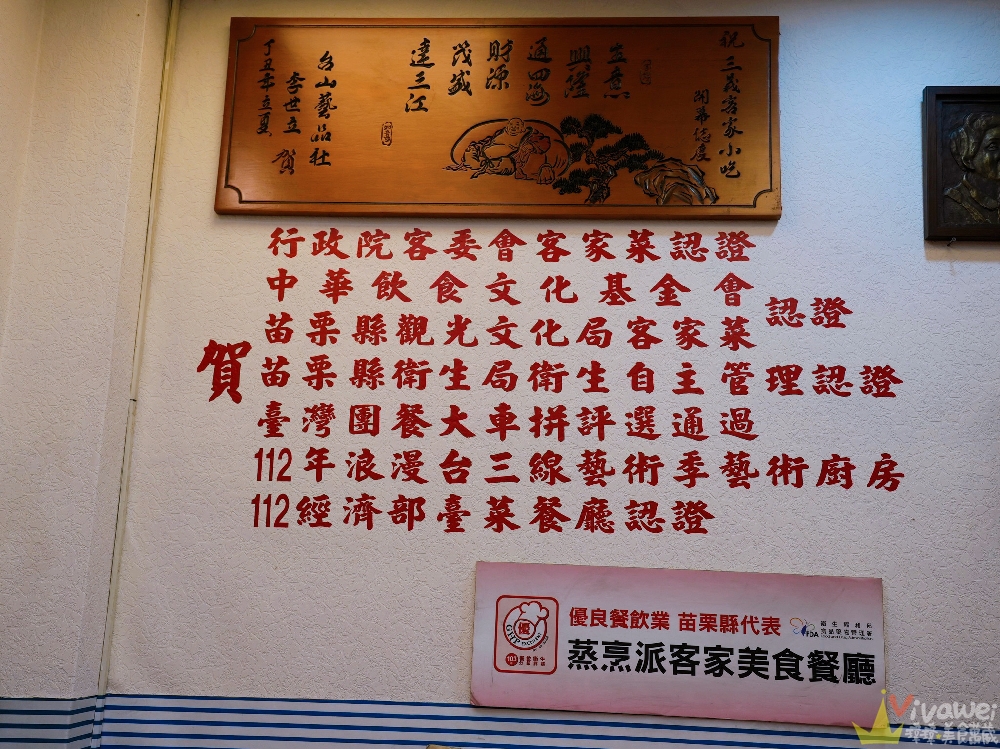 祝 三義客家小吃
開幕誌慶
生意
興隆
通四海
財源
茂盛
達三江
台山藝品社
李世立 賀
丁丑年立夏
賀
行政院客委會客家菜認證
中華飲食文化基金會
苗栗縣觀光文化局客家菜
認證
苗栗縣衛生局衛生自主管理認證
臺灣團餐大車拼評選通過
112年浪漫台三線藝術季藝術廚房
112經濟部臺菜餐廳認證
優
GHP
103
優良餐飲業 苗栗縣代表
FDA
蒸烹派客家美食餐廳
Vivawei